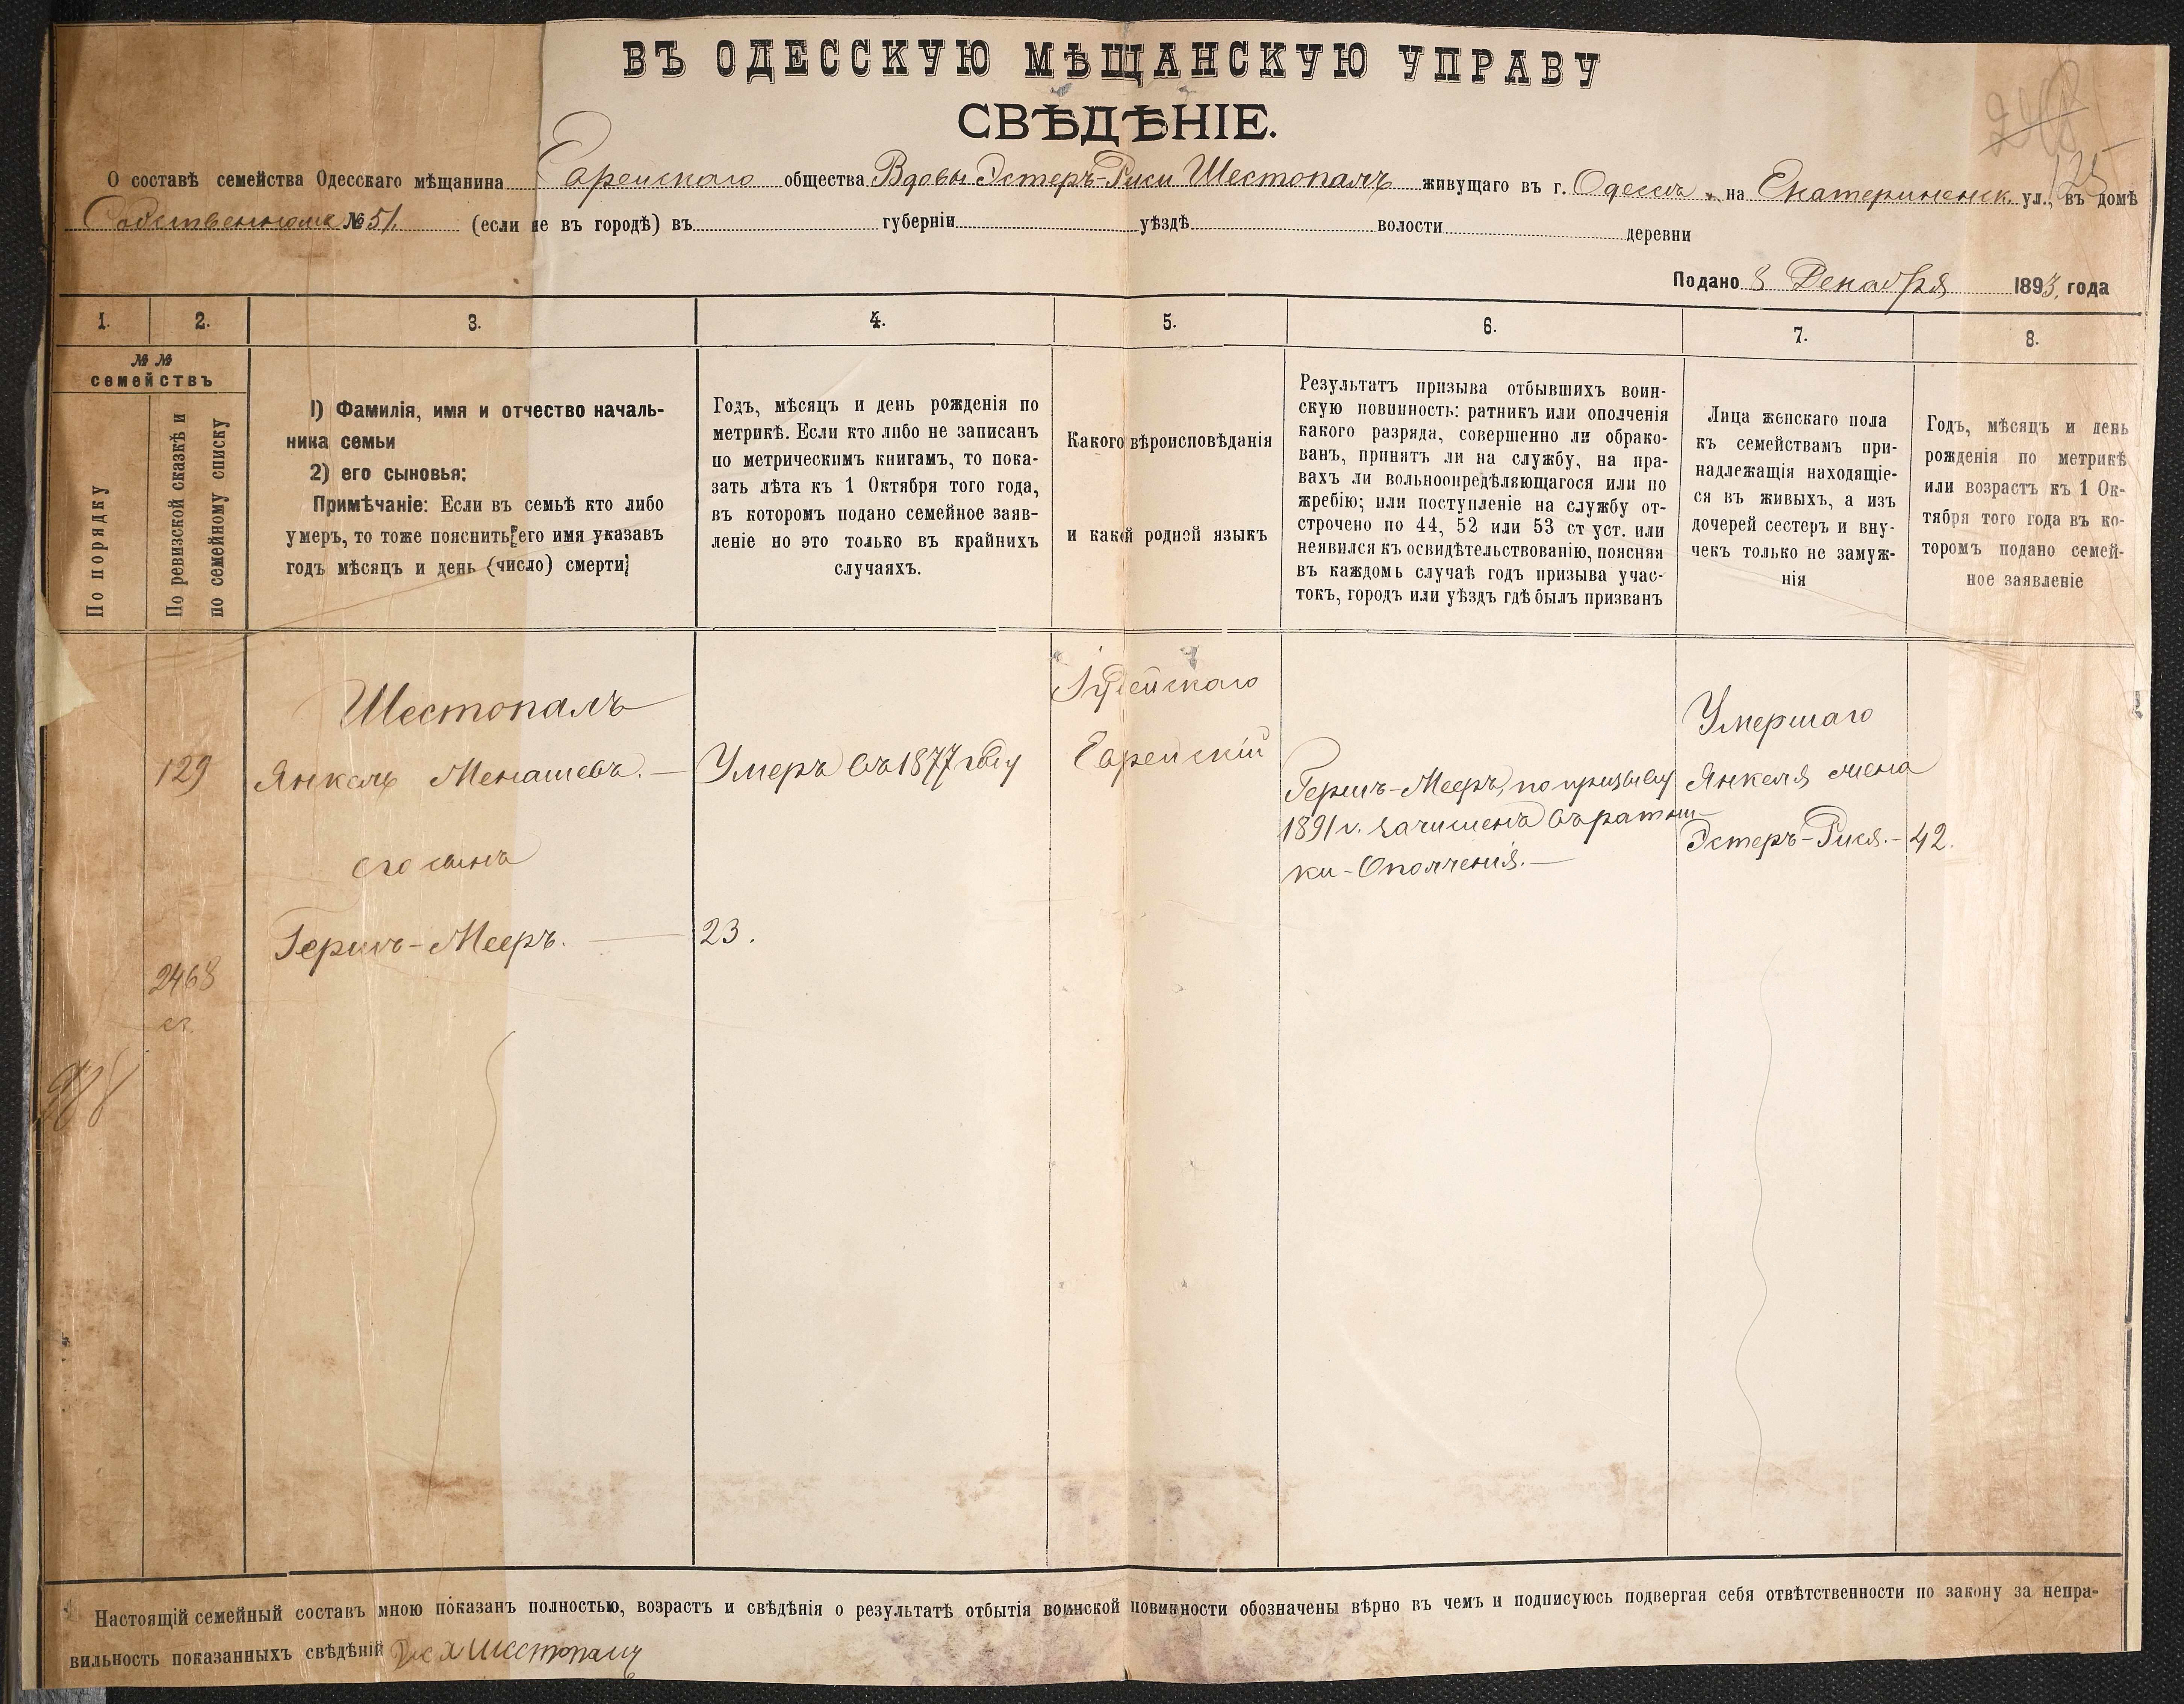 ВЪ ОДЕССКУЮ МѢЩАНСКУЮ УПРАВУ
СВѢДѢНІЕ.
О составѣ семейства Одесскаго мѣщанина Еврейскаго общества Вдовы Эстеръ-Риси Шестопалъ живущаго въ г. Одессѣ на Екатерининск. ул., въ домѣ
Собственномъ № 51. (если не въ городѣ) въ губерніи уѣздѣ волости деревни
125
Подано 8 Декабря 1893 года
1. 2. 3. 4. 5. 6. 7. 8.
№ №
семействъ
По порядку
По ревизской сказкѣ и
по семейному списку
I) Фамилія, имя и отчество началь-
ника семьи
2) его сыновья:
Примѣчаніе: Если въ семьѣ кто либо
умеръ, то тоже пояснить его имя указавъ
годъ мѣсяцъ и день (число) смерти;
Годъ, мѣсяцъ и день рожденія по
метрикѣ. Если кто либо не записанъ
по метрическимъ книгамъ, то пока-
зать лѣта къ 1 Октября того года,
въ которомъ подано семейное заяв-
леніе но это только въ крайнихъ
случаяхъ.
Какого вѣроисповѣданія
и какой родной языкъ
Результатъ призыва отбывшихъ воин-
скую повинность: ратникъ или ополченія
какого разряда, совершенно ли обрако-
ванъ, принятъ ли на службу, на пра-
вахъ ли вольноопредѣляющагося или по
жребію; или поступленіе на службу от-
строчено по 44, 52 или 53 ст уст. или
неявился къ освидѣтельствованію, поясняя
въ каждомъ случаѣ годъ призыва учас-
токъ, городъ или уѣздъ гдѣ былъ призванъ
Лица женскаго пола
къ семействамъ при-
надлежащія находящіе-
ся въ живыхъ, а изъ
дочерей сестеръ и вну-
чекъ только не замуж-
нія
Годъ, мѣсяцъ и день
рожденія по метрикѣ
или возрастъ къ 1 Ок-
тября того года въ ко-
торомъ подано семей-
ное заявленіе
129
2468
Шестопалъ
Янкель Менашевъ.
его сынъ
Гершъ-Мееръ.
Умеръ въ 1877 году
23.
Іудейскаго
Еврейскій
Гершъ-Мееръ, по призыву
1891 г. зачисленъ въ ратни-
ки-Ополченія.
Умершаго
Янкеля жена
Эстеръ-Рися. - 42.
Настоящій семейный составъ мною показанъ полностью, возрастъ и свѣдѣнія о результатѣ отбытія воинской повинности обозначены вѣрно въ чемъ и подписуюсь подвергая себя отвѣтственности по закону за непра-
вильность показанныхъ свѣдѣній Шестопалъ